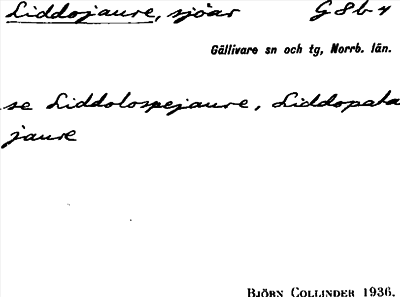 Liddojaure, sjöar G 8 b 4
Gällivare sn och tg, Norrb. län.
se Liddolospejaure, Liddopata
jaure
BJÖRN COLLINDER 1936.